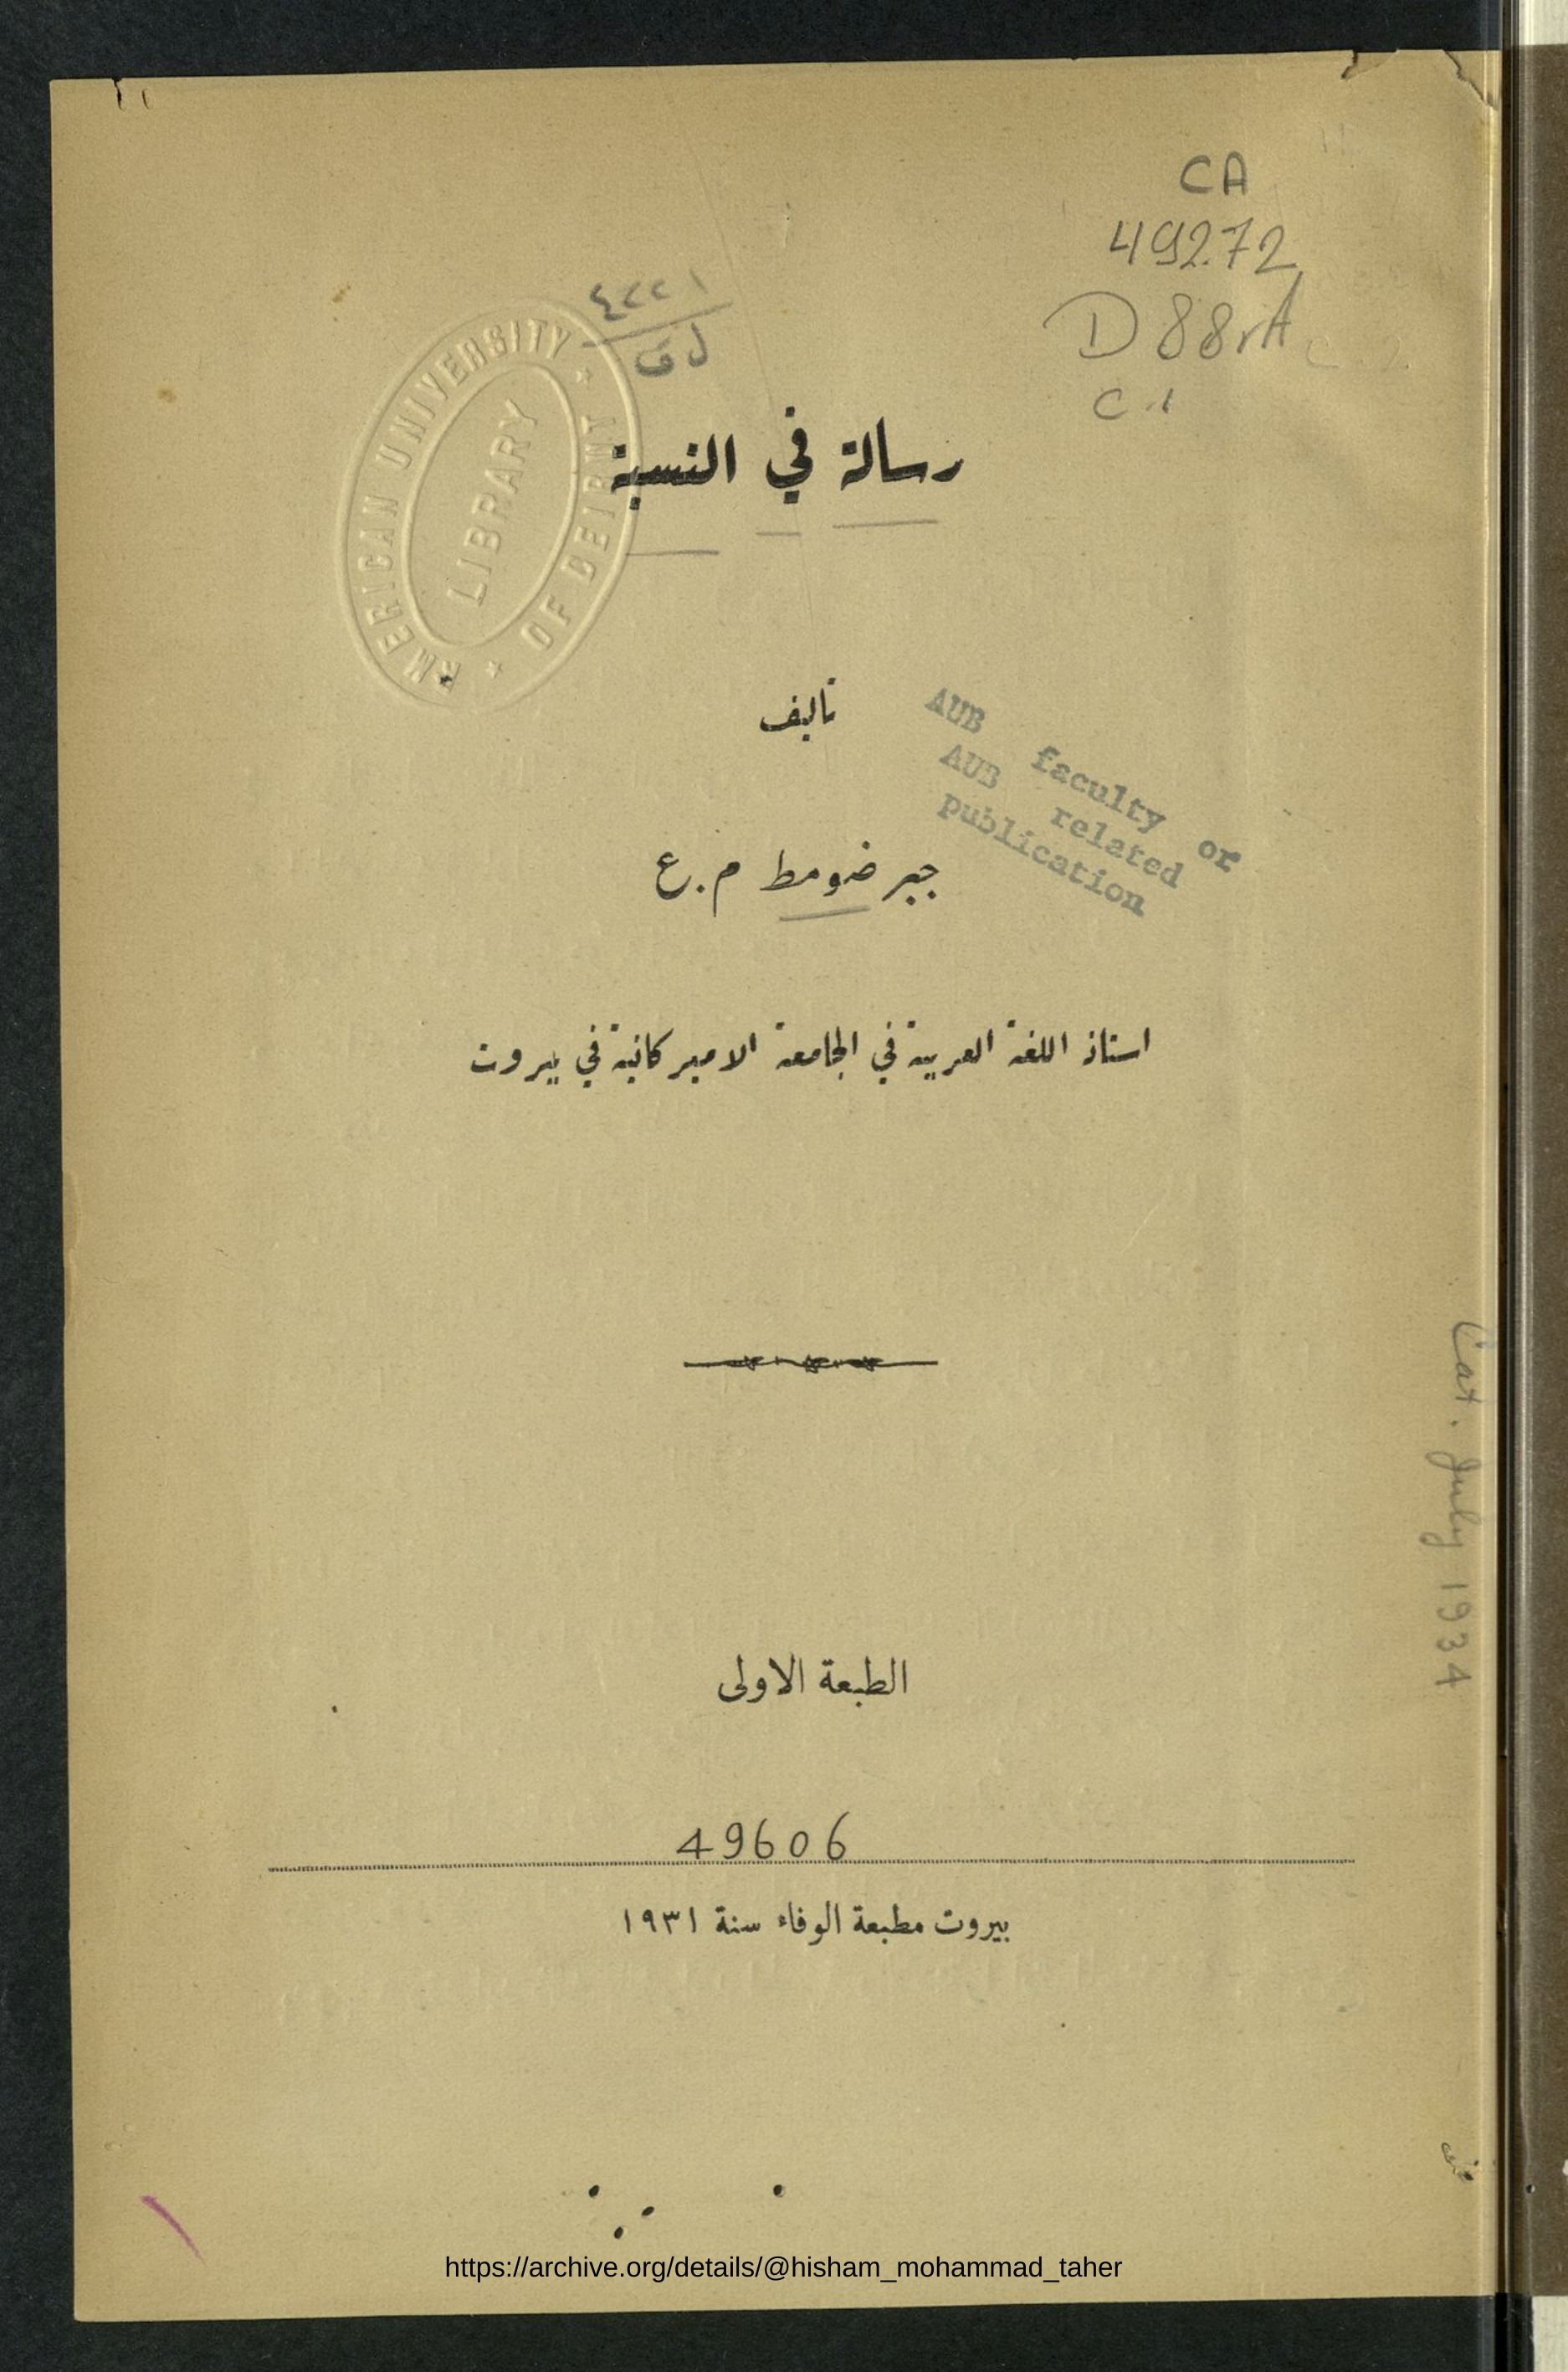 CA
492.72
D88rA
C.1
٤٢٢١
ل ق
AMERICAN UNIVERSITY OF BEIRUT
LIBRARY
رسالة في النسبة
تاليف
AUB faculty or
AUB related
publication
جبر ضومط م.ع
استاذ اللغة العربية في الجامعة الاميركانية في بيروت
Cat. July 1934
الطبعة الاولى
49606
بيروت مطبعة الوفاء سنة ١٩٣١
https://archive.org/details/@hisham_mohammad_taher